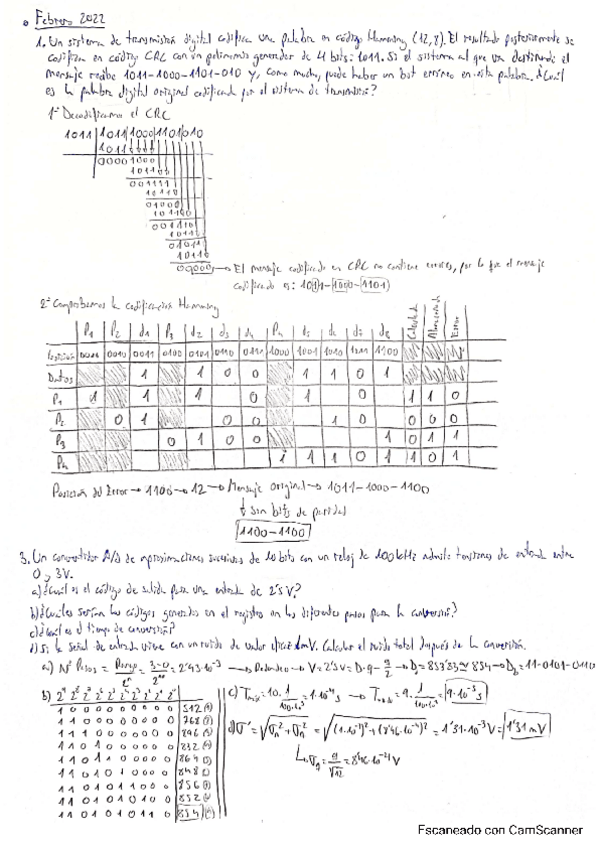 Febrero 2022
1. Un sistema de transmisión digital codifica una palabra en código Hamming (12,8). El resultado posteriormente se
codifica en código CRC con un polinomio generador de 4 bits: 1011. Si el sistema al que va destinado el
mensaje recibe 1011-1000-1101-010 y, como mucho, puede haber un bit erróneo en esta palabra. ¿Cuál
es la palabra digital original codificada por el sistema de transmisión?
1º Decodificamos el CRC
1011 1011 1000 1101 010
1011
0000 1000
→ El mensaje codificado en CRC no contiene errores, por lo que el mensaje
codificado es: 1011-1000-1101
2º Comprobamos la codificación Hamming
P1 P2 d1 P3 d2 d3 d4 P4 d5 d6 d7 d8 Calculada Almacenada Error
Posición 0001 0010 0011 0100 0101 0110 0111 1000 1001 1010 1011 1100
Datos 1 1 0 0 1 1 0 1
P1 1 1 1 0 1 0 1 1 0
P2 0 1 0 0 1 0 0 0 0
P3 0 1 0 0 1 0 1 1
P4 1 1 1 0 1 1 0 1
Posición del Error → 1100 → 12 → Mensaje original → 1011-1000-1100
↓ sin bits de paridad
1100-1100
3. Un convertidor A/D de aproximaciones sucesivas de 10 bits con un reloj de 100 kHz admite tensiones de entrada entre
0 y 3V.
a) ¿Cuál es el código de salida para una entrada de 2'5 V?
b) ¿Cuáles serían los códigos generados en el registro en los diferentes pasos para la conversión?
c) ¿Cuál es el tiempo de conversión?
d) Si la señal de entrada viene con un ruido de valor eficaz 1mV. Calcular el ruido total después de la conversión.
a) Nº Pasos = Rango/2ⁿ = 3-0/2¹⁰ = 2'93·10⁻³ → Redondeo → V = 2'5V = D·q - q/2 → D = 853'83 ≈ 854 → D = 11-0101-0110
b) 2⁹ 2⁸ 2⁷ 2⁶ 2⁵ 2⁴ 2³ 2² 2¹ 2⁰
1 0 0 0 0 0 0 0 0 0 512
1 1 0 0 0 0 0 0 0 0 768
1 1 1 0 0 0 0 0 0 0 896
1 1 0 1 0 0 0 0 0 0 832
1 1 0 1 1 0 0 0 0 0 864
1 1 0 1 0 1 0 0 0 0 848
1 1 0 1 0 1 1 0 0 0 856
1 1 0 1 0 1 0 1 0 0 852
1 1 0 1 0 1 0 1 1 0 854
c) = 10·1/100·10³ = 1·10⁻⁴ s → = 9·1/100·10³ = 9·10⁻⁵ s
d) σ' = √(σn² + σq²) = √((1·10⁻³)² + (8'46·10⁻⁴)²) = 1'31·10⁻³ V = 1'31 mV
σq = q/√12 = 8'46·10⁻⁴ V
Escaneado con CamScanner